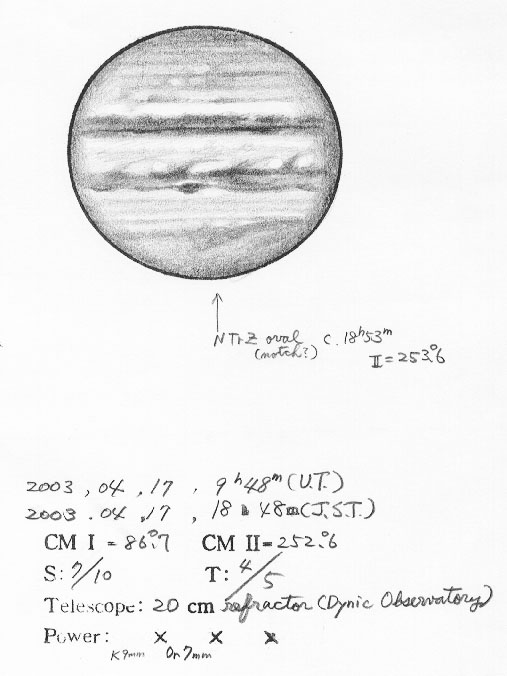 NTrZ oval c. 18h53m
(notch?) II=253.°6
2003, 04, 17, 9h48m (U.T.)
2003.04.17, 18h48m (J.S.T.)
CM I = 86.°7 CM II= 252.°6
S: 7/10 T: 4/5
Telescope: 20 cm refractor (Dynic Observatory)
Power: × × ×
K9mm Or7mm